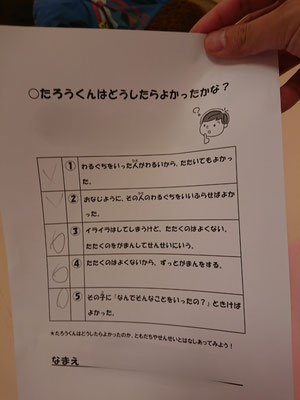 ○たろうくんはどうしたらよかったかな？
① わるぐちをいった人がわるいから、たたいてもよかっ
た。
② おなじように、その人のわるぐちをいいふらせばよか
った。
③ イライラはしてしまうけど、たたくのはよくない。
たたくのをがまんしてせんせいにいう。
④ たたくのはよくないから、ずっとがまんをする。
⑤ その子に「なんでそんなことをいったの？」ときけば
よかった。
＊たろうくんはどうしたらよかったのか、ともだちやせんせいとはなしあってみよう！
なまえ